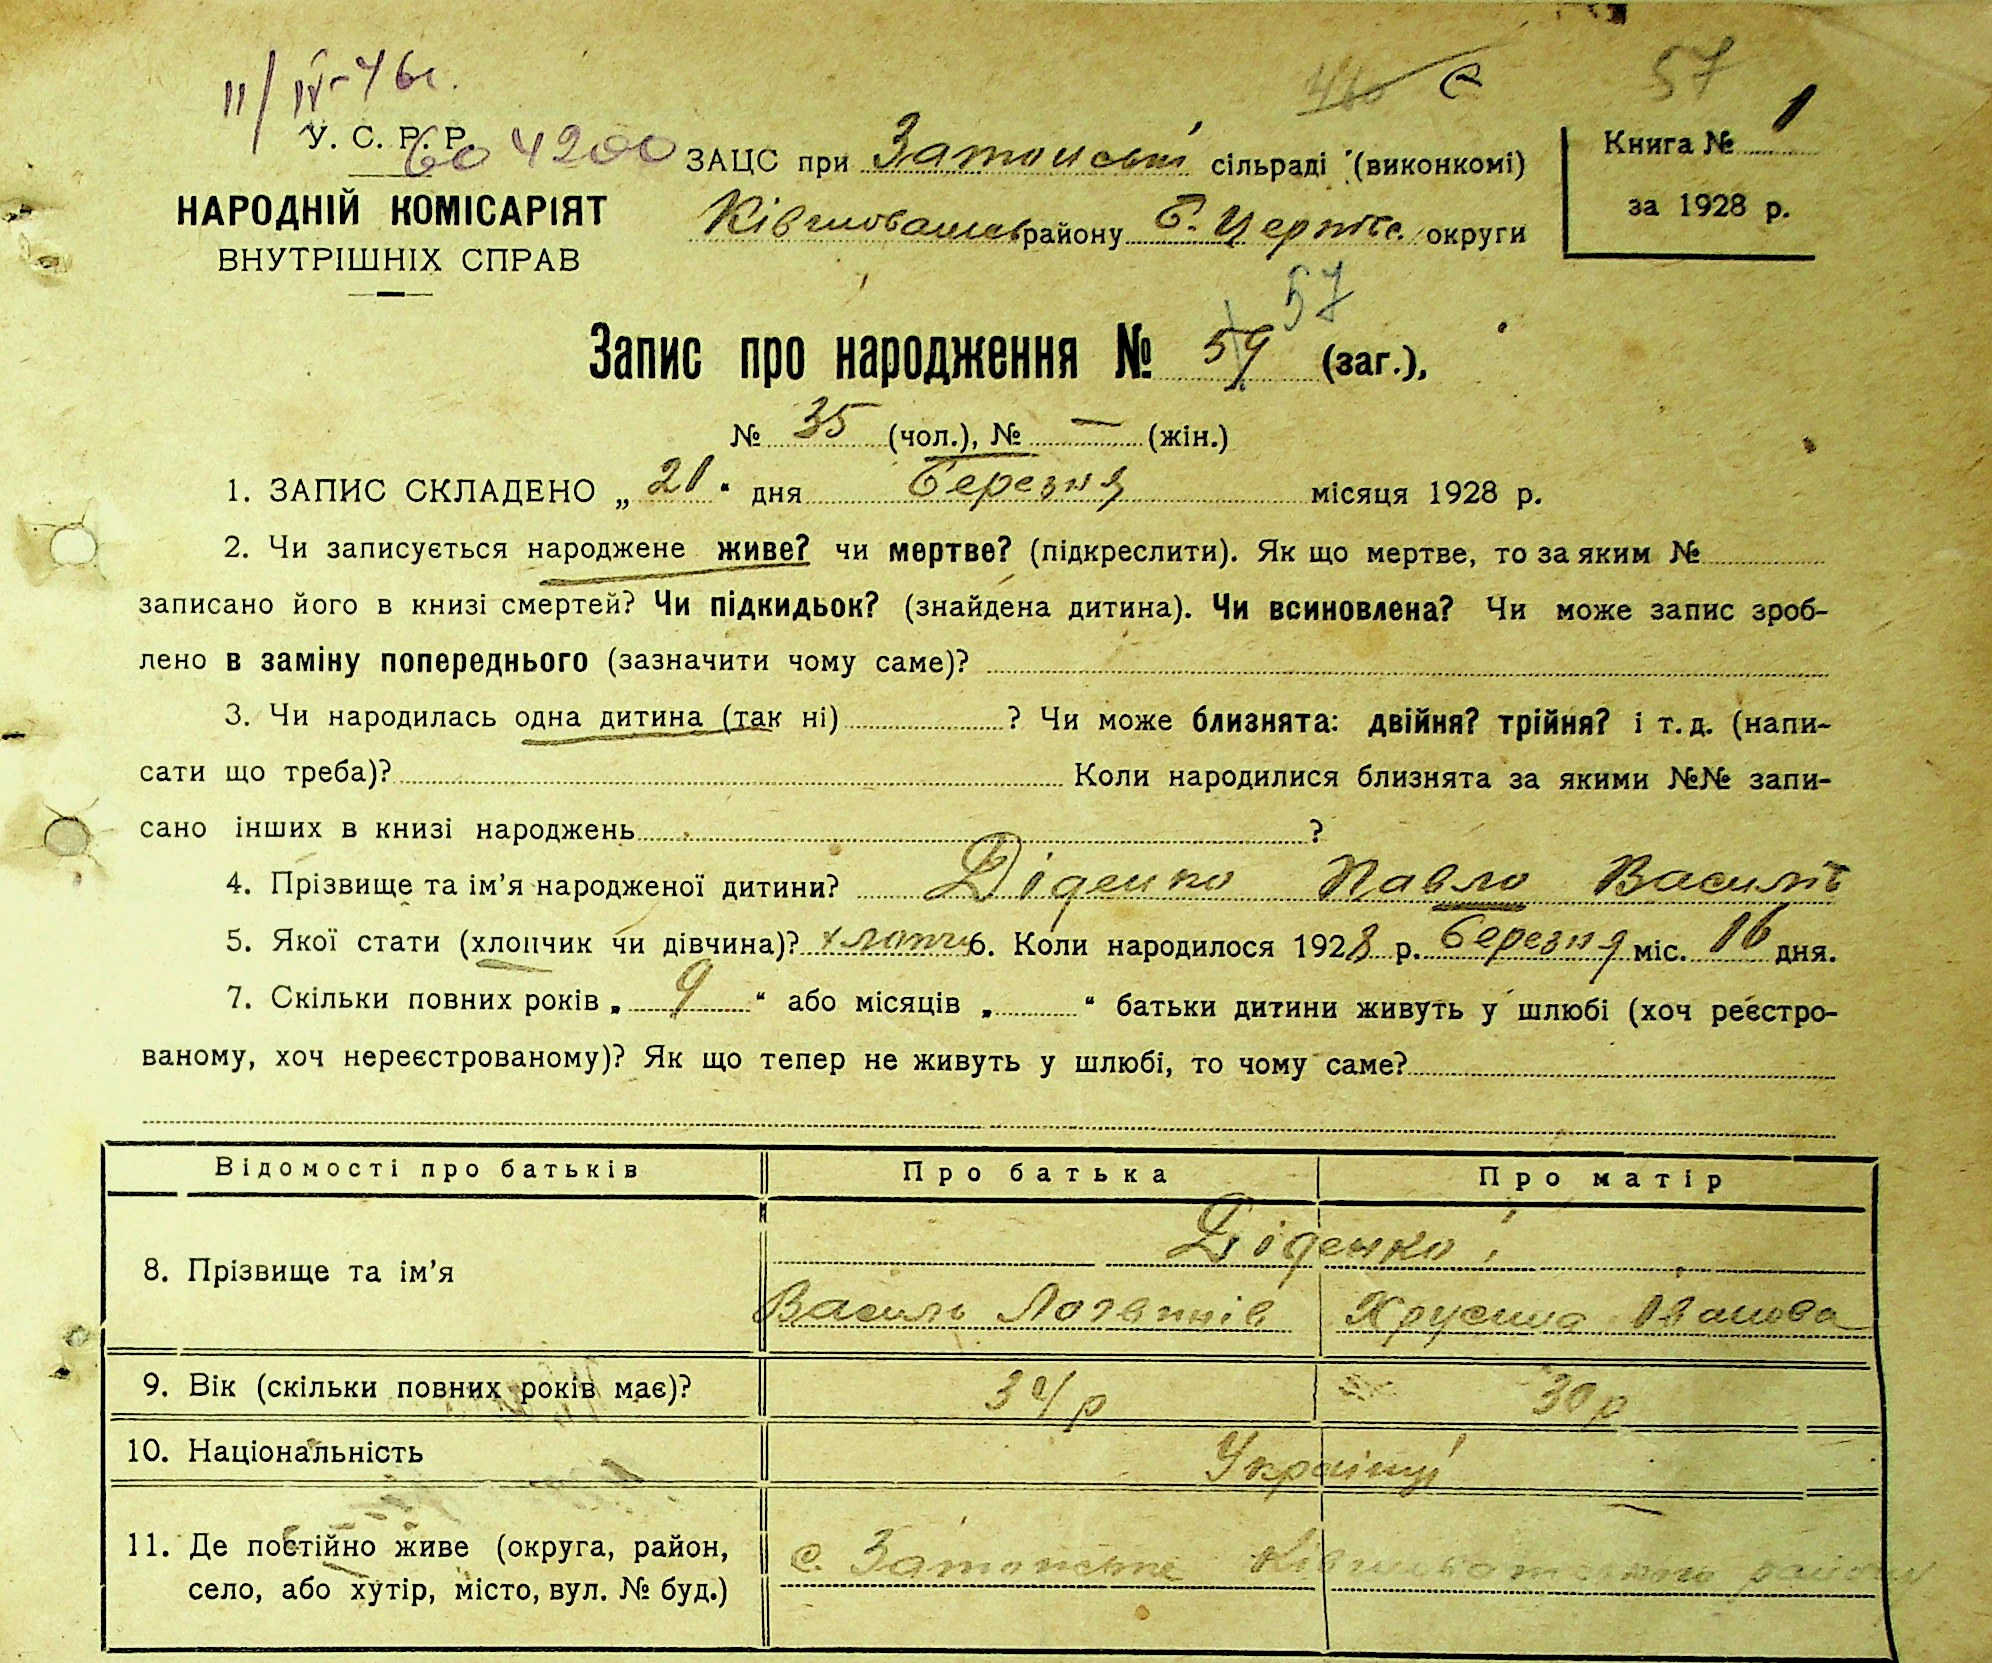 11/IV-46г.
57
У. С. Р. Р.
604200
ЗАЦС при Затонські сільраді (виконкомі)
Книга № 1
НАРОДНІЙ КОМІСАРІЯТ
району Б. Церків. округи
за 1928 р.
ВНУТРІШНІХ СПРАВ
57
Запис про народження № 59 (заг.),
№ 35 (чол.), № — (жін.)
1. ЗАПИС СКЛАДЕНО „ 21 “ дня Березня місяця 1928 р.
2. Чи записується народжене живе? чи мертве? (підкреслити). Як що мертве, то за яким №
записано його в книзі смертей? Чи підкидьок? (знайдена дитина). Чи всиновлена? Чи може запис зроб-
лено в заміну попереднього (зазначити чому саме)?
3. Чи народилась одна дитина (так ні) ? Чи може близнята: двійня? трійня? і т. д. (напи-
сати що треба)? Коли народилися близнята за якими №№ запи-
сано інших в книзі народжень ?
4. Прізвище та ім’я народженої дитини? Діденко Павло Василів
5. Якої стати (хлопчик чи дівчина)? хлопч 6. Коли народилося 1928 р. Березня міс. 16 дня.
7. Скільки повних років „ 9 “ або місяців „ “ батьки дитини живуть у шлюбі (хоч реєстро-
ваному, хоч нереєстрованому)? Як що тепер не живуть у шлюбі, то чому саме?
Відомості про батьків Про батька Про матір
Діденко
8. Прізвище та ім’я
Василь Логвинів Хрусина Іванова
9. Вік (скільки повних років має)? 34 р 30 р
10. Національність Українці
11. Де постійно живе (округа, район,
с. Затонське району
село, або хутір, місто, вул. № буд.)